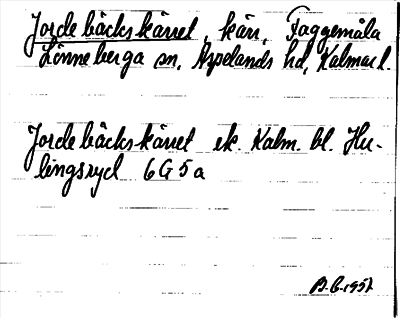 Jordebäckskärret, kärr, Faggemåla
Lönneberga sn, Aspelands hd, Kalmar l.
Jordebäckskärret ek. Kalm. bl. Hu-
lingsryd 6G5a
B.E. 1957